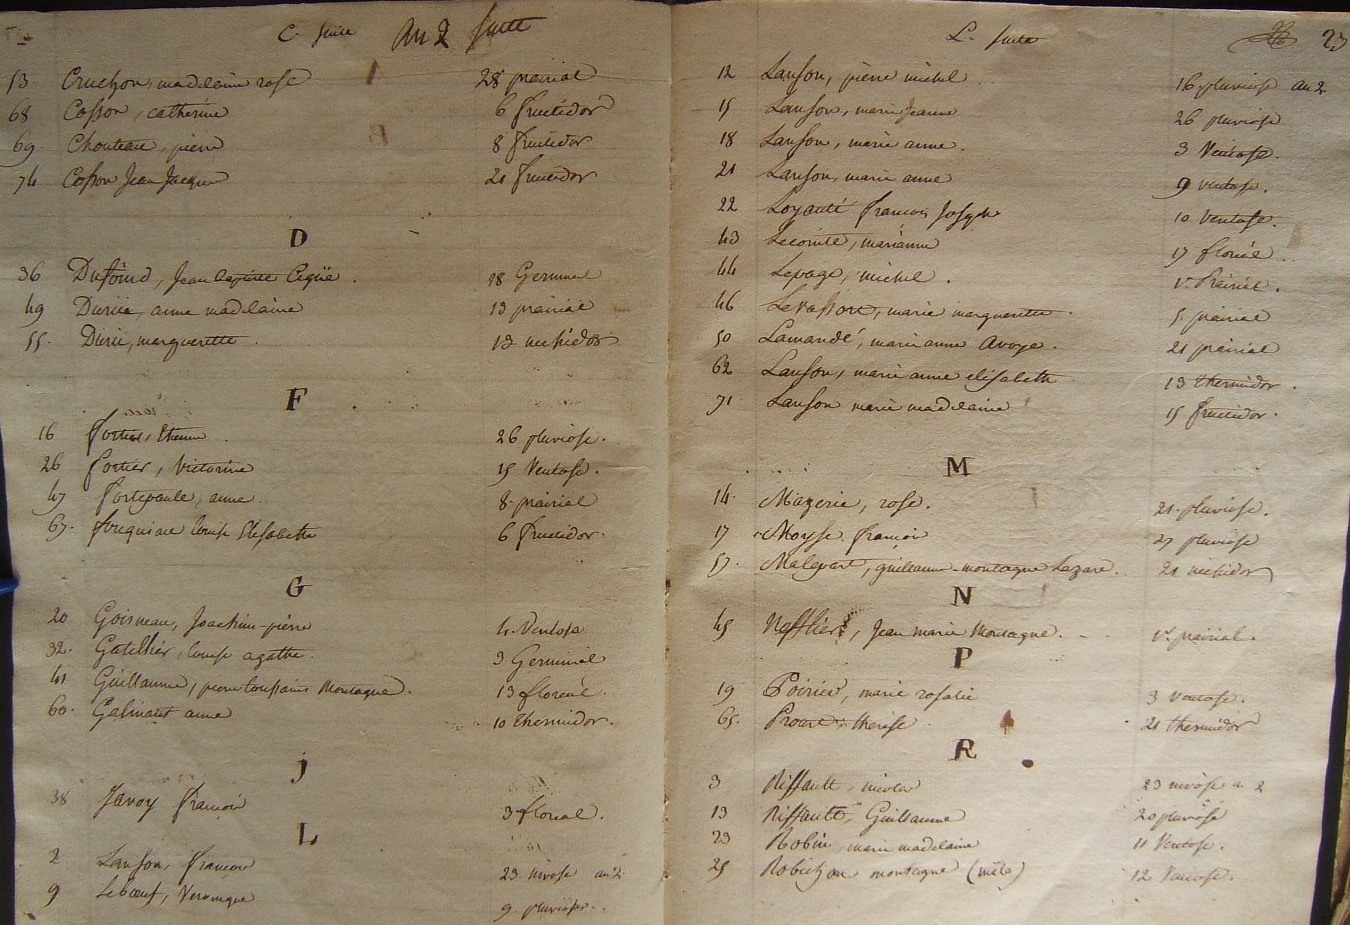 C. suite An 2 suite
53. Cruchon, madelaine rose 28 prairial
68 Cosson, catherine 6 fructidor
69. Chouteau, pierre 8 fructidor
74 Cosson Jean Jacques 21 fructidor
D
36 Jean 18 Germinal
49 Duriie, anne madelaine 13 prairial
55. Durii, marguerette 12 messidor
F
16 fortier, Etienne 26 pluviose.
26 fortier, victorine 15 Ventose.
47 fortepaule, anne. 8. prairial
67. louise Elisabette 6 fructidor.
G
20 Goisneau, Joachim-pierre 4. Ventose
32. Gatellier, louise agathe. 3 Germinal
41 Guillaume, pierre toussaint Montagne. 13 floréal.
60. Galinant anne 10 thermidor.
j
38 Javoy françois 3 floreal.
L
2 Lanson, francois 23 nivose an 2
9 Lebœuf, Veronique 9. pluviose.
L. suite 23
12 Lanson, pierre michel 16 pluviose an 2
15 Lanson, marie Jeanne 26 pluviose
18 Lanson, marie anne. 3 Ventose.
21 Lanson, marie anne 9 ventose.
22 Loyauté francois Joseph 10 ventose.
43 Lecomte, marianne 17 floréal.
44 Lepage, michel. 1er Prairial.
46 Levassort, marie marguerette. 5. prairial
50 Lamandé, marie anne avoye. 21 prairial
62 Lanson, marie anne elisabeth 13 thermidor.
71 Lanson marie madelaine 15 fructidor.
M
14. Mazerie, rose. 21. pluviose.
17 Moyse. françois 27 pluviose
57. Malepart, guillaume-montagne Lazare. 21 messidor
N
45 Nefflier, Jean marie Montagne. 1er prairial.
P
19 Poirier, marie rosalie 3 ventose.
65. therese 21 thermidor
R
3 Riffault, nicolas 23 nivose an 2
13 Riffault, Guillaume 20 pluviose
23 Robin, marie madelaine 11 Ventose.
25 Robichon montagne (mâle) 12 Ventose.